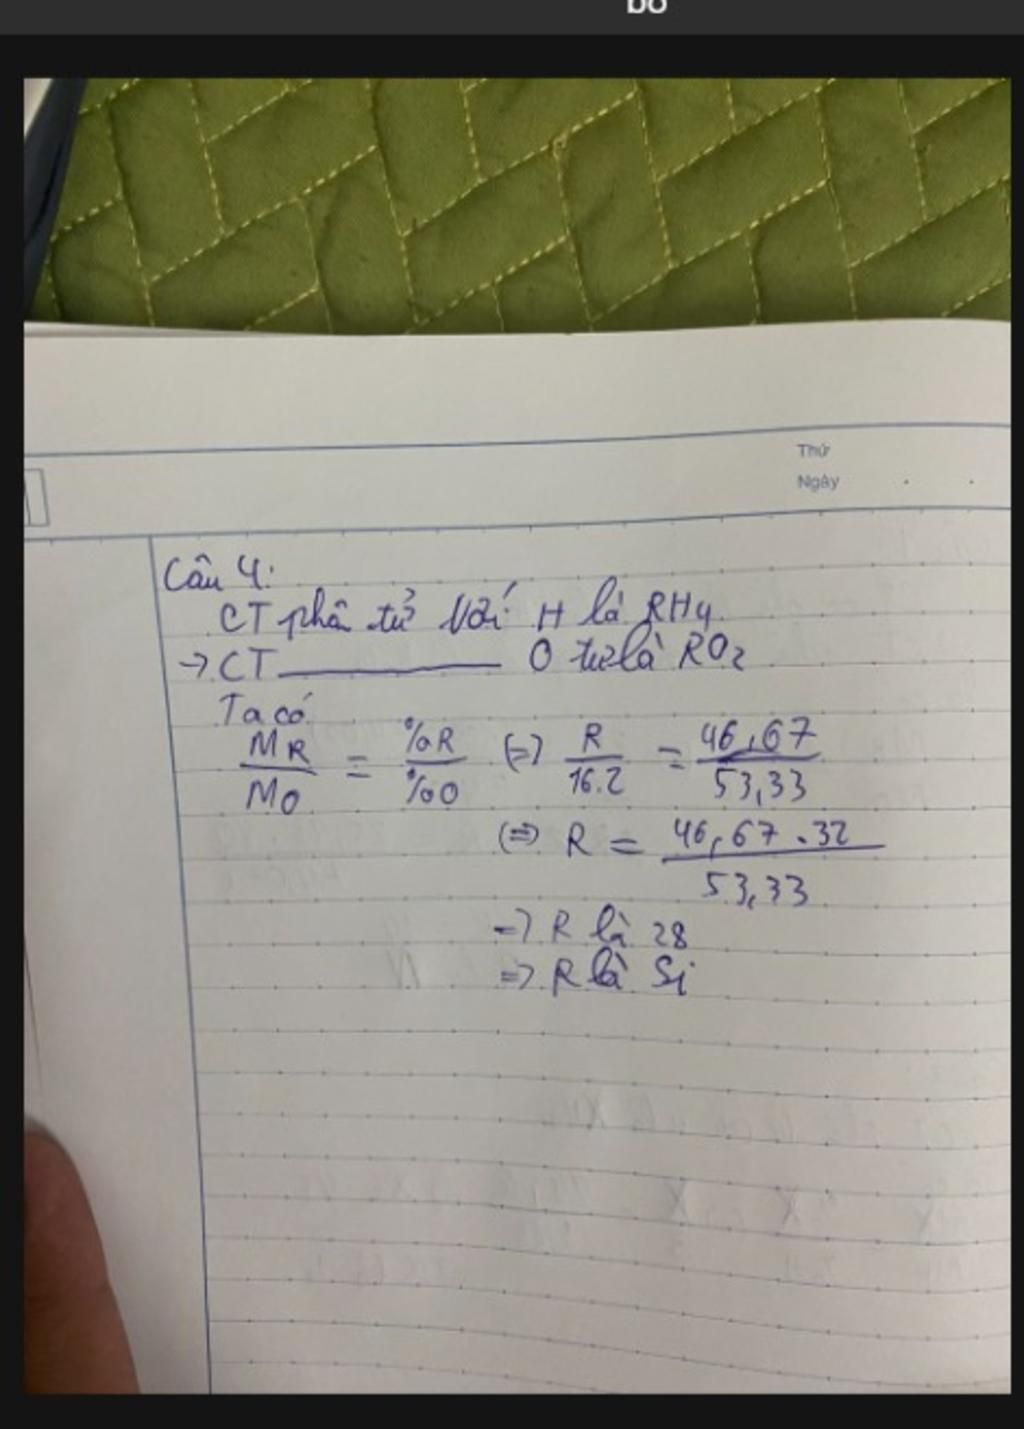 bo
Thứ
Ngày
Câu 4:
CT phân tử với H là RH4
→ CT ———— O tư là RO2
Ta có
MR/MO = %R/%O (=) R/16.2 = 46,67/53,33
(=) R = 46,67.32/53,33
=) R là 28
=) R là Si